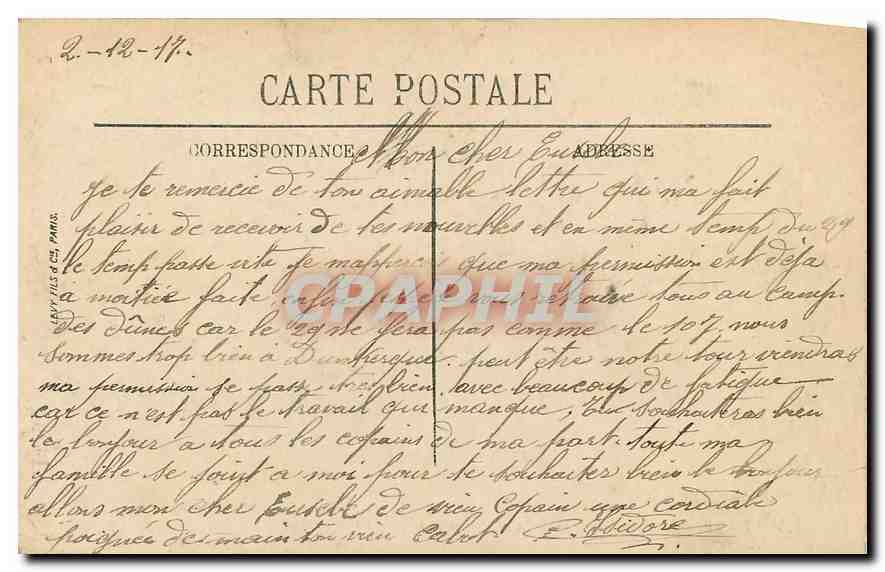 2.-12-17.
CARTE POSTALE
CORRESPONDANCE
ADRESSE
Mon cher Eusebe
Je te remercie de ton aimable lettre qui ma fait
plaisir de recevoir de tes nouvelles et en même temp du 29
le temp passe vite je mapperci que ma permission est déja
à moitiee faite enfin je vous retrouve tous au camp
des dûnes car le 29 ne fera pas comme le 107. nous
sommes trop bien à Dunkerque. peut être notre tour viendra
ma permission se passe tres bien avec beaucoup de fatigue
car ce n'est pas le travail qui manque. Tu souhaiteras bien
le bonjour a tous les copains de ma part. toute ma
famille se joint a moi pour te souhaiter bien le bonjour
allons mon cher Eusebe de vieux Copain une cordiale
poignée de main ton vieu Cabot
Isidore
LEVY FILS & Cie, PARIS.
CPAPHIL